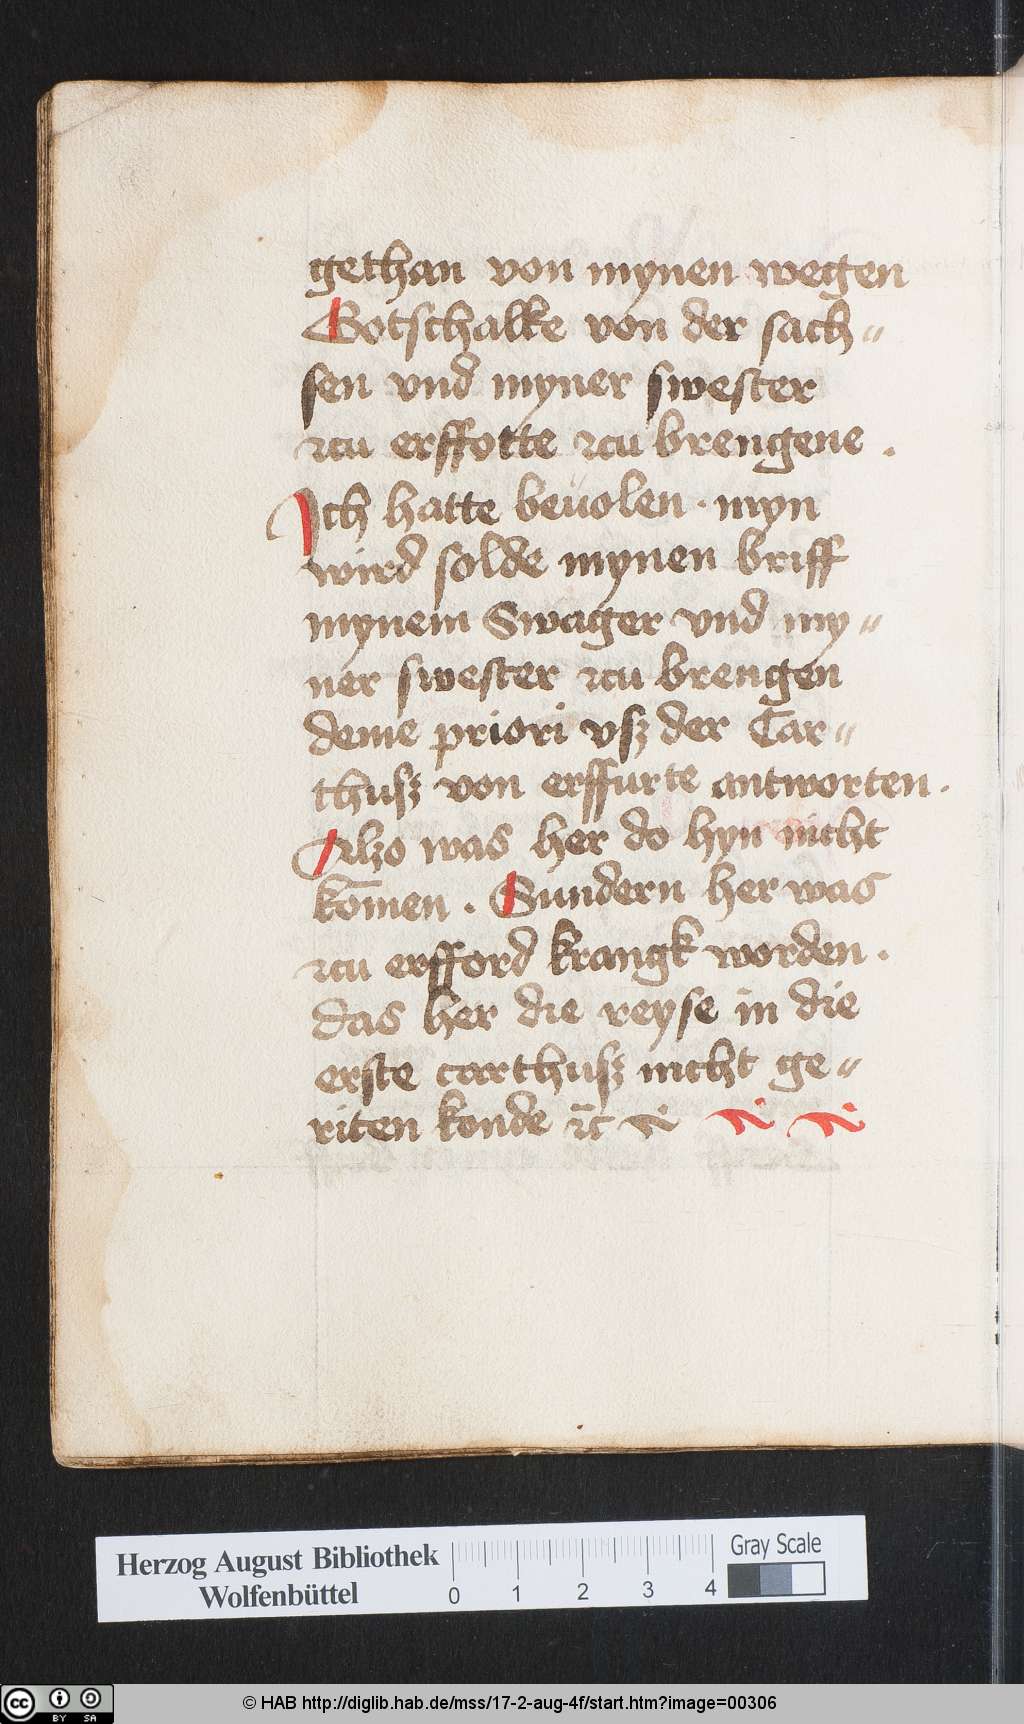 gethan von mynen wegen
Gotschalke von der sach„
sen vnd myner swester
zcu erffotte zcu brengene .
Ich hatte beüolen · myn
wird solde mynen briff
mynem Swager vnd my„
ner swester zcu brengen
deme priori vsz der Car„
thusz von erffurte antworten .
Alzo was her do hyn nicht
kōmen . Sundern her was
zcu erfford krangk worden .
das her die reyse in die
erste carthusz nicht ge„
riten konde ꝛc̄
Herzog August Bibliothek
Wolfenbüttel
0 1 2 3 4
Gray Scale
cc BY SA
© HAB http://diglib.hab.de/mss/17-2-aug-4f/start.htm?image=00306